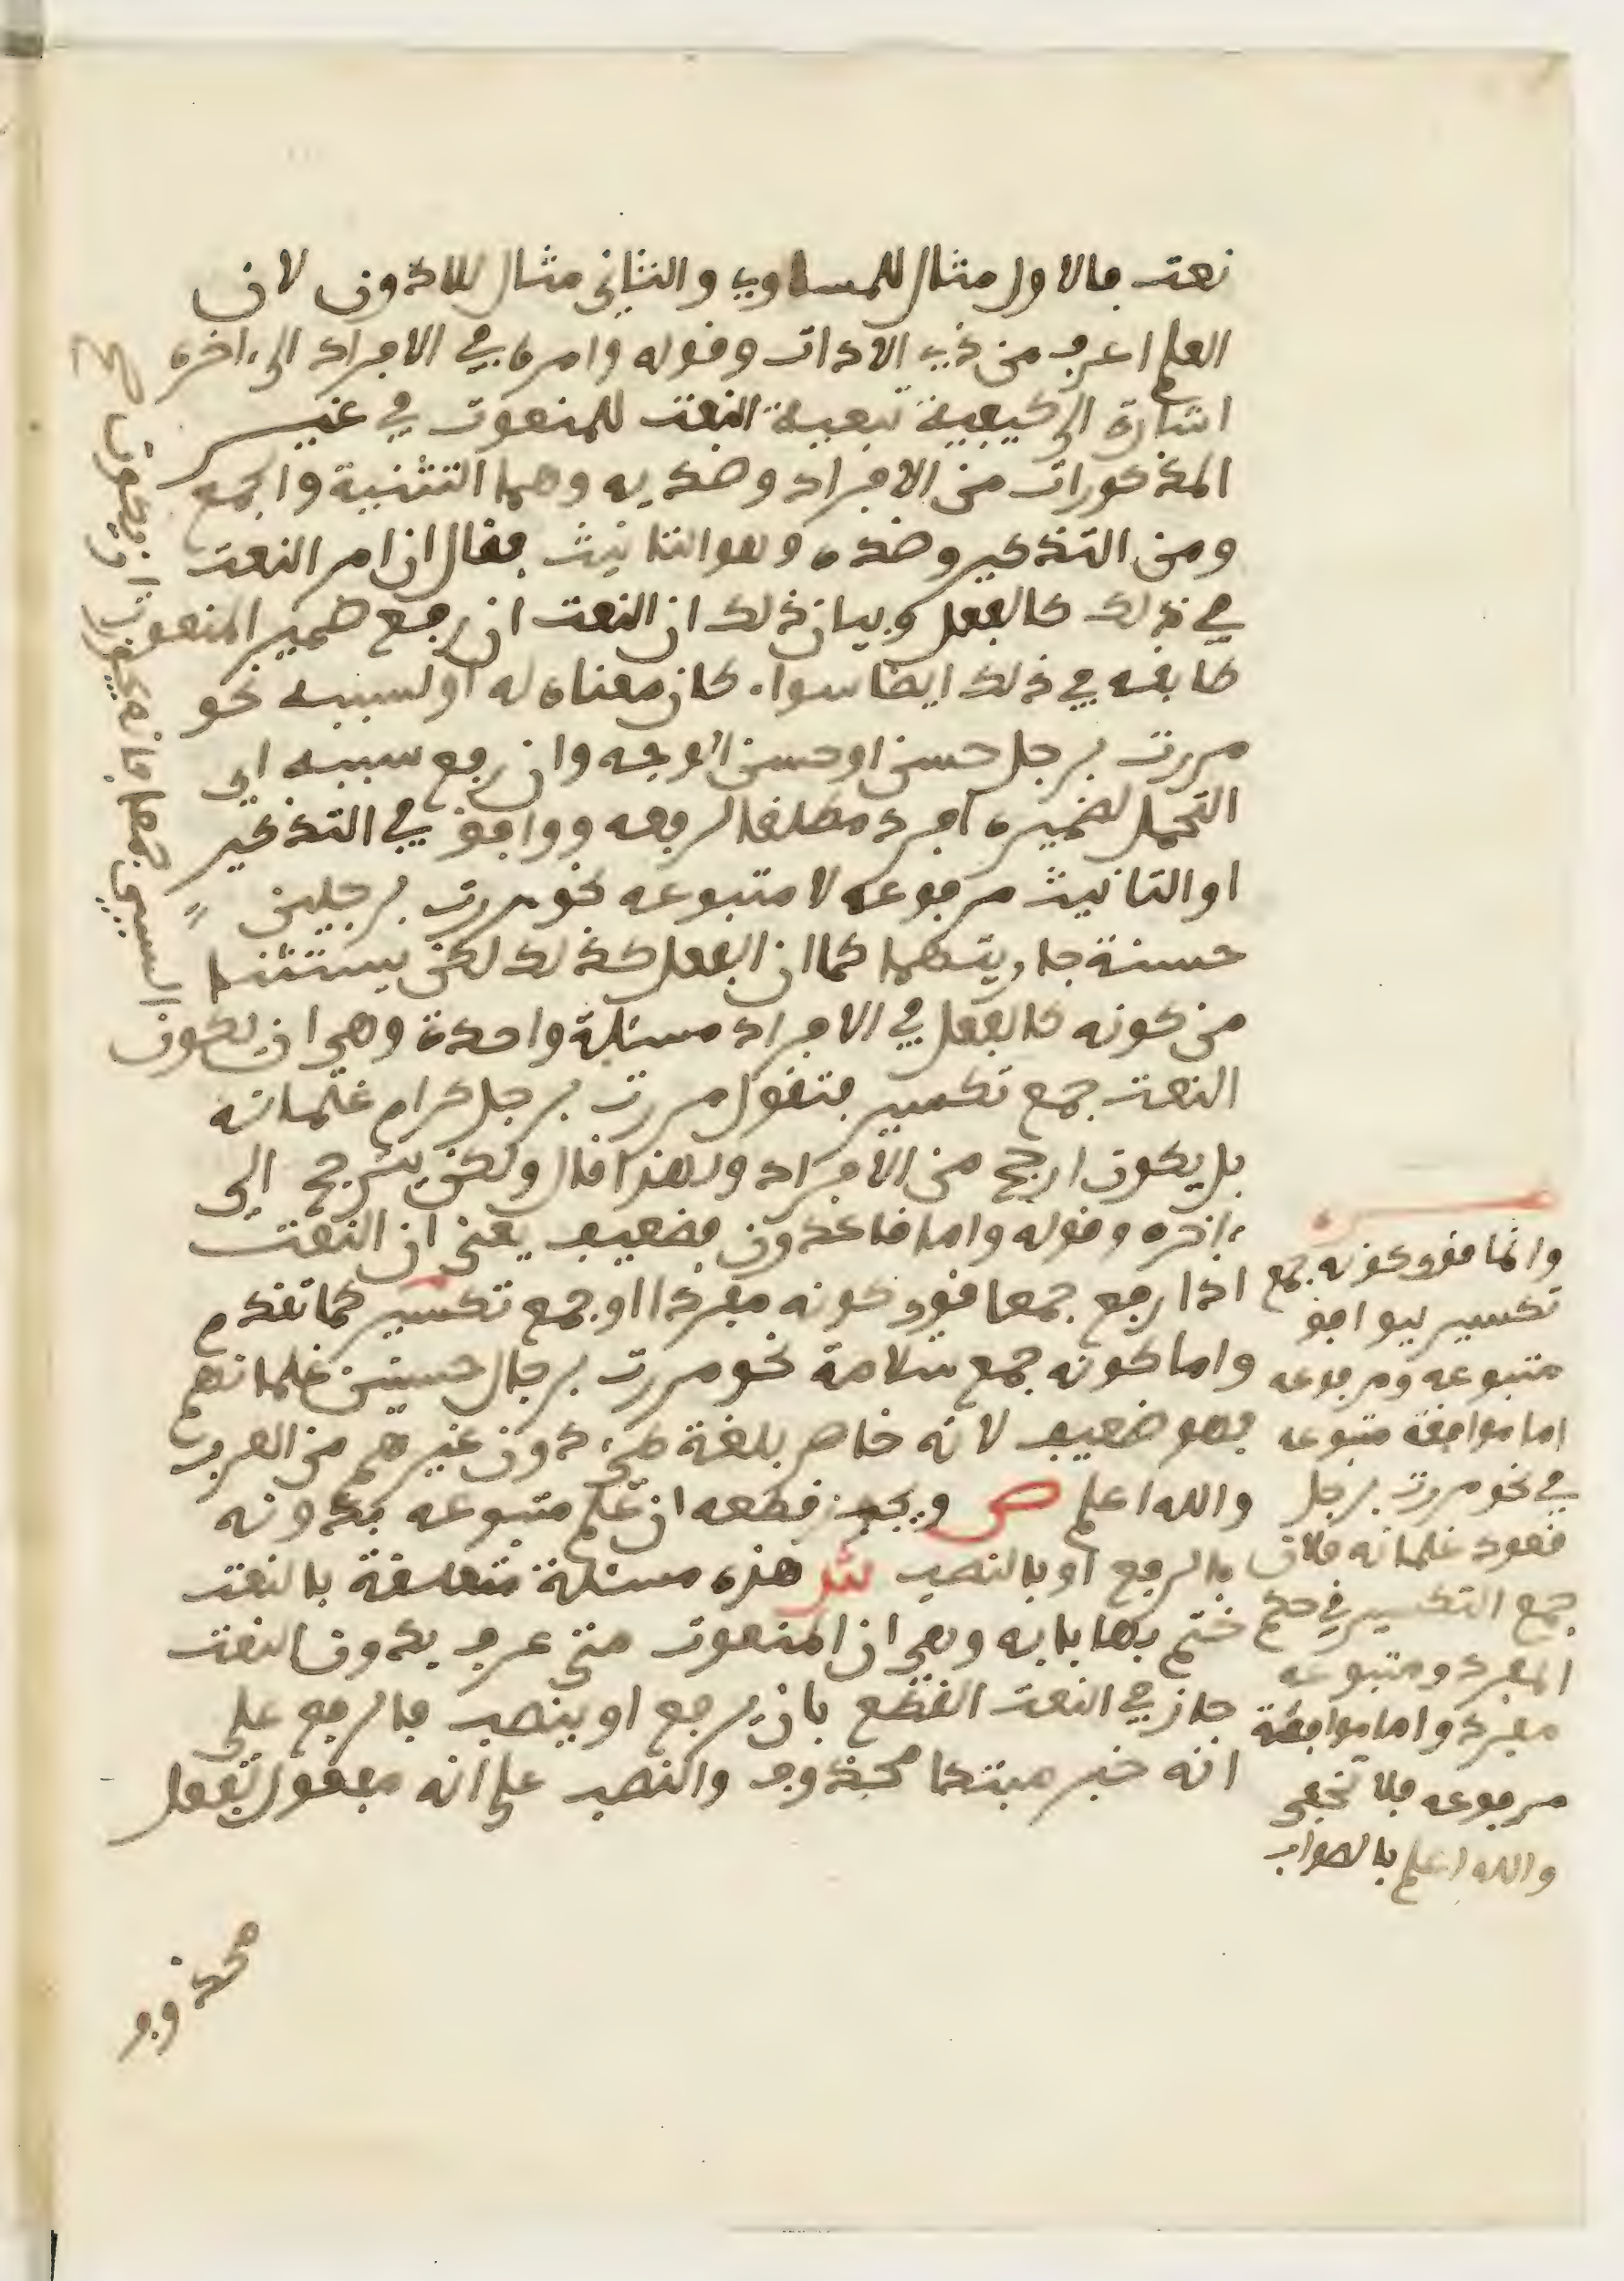 نعت فالاول مثال للمساوي والثاني مثال للادون لان
العلم اعرف من ذي الادات وقوله وامره في الافراد الى ءاخره
اشارة الى كيفية تبعية النعت للمنعوت في غير
المذكورات من الافراد وضديه وهما التثنية والجمع
ومن التذكير وضده وهو التانيث فقال ان امر النعت
في ذلك كالفعل وبيان ذلك ان النعت ان رفع ضمير المنعوت
طابقه في ذلك ايضا سواء كان معناه له او لسببه نحو
مررت برجل حسن او حسن الوجه وان رفع سببه اي
المتحمل لضميره افرد مطلقا لرفعه ووافق في التذكير
او التانيث مرفوعه لا متبوعه نحو مررت برجلين
حسنة جاريتهما كما ان الفعل كذلك لكن يستثنا
من كونه كالفعل في الافراد مسئلة واحدة وهي ان يكون
النعت جمع تكسير فتقول مررت برجل كرام غلمانه
بل يكون ارجح من الافراد ولهذا قال ولكن يترجح الى
ءاخره وقوله واما قاعدون فضعيف يعني ان النعت
اذا رفع جمعا قوي كونه مفردا او جمع تكسير كما تقدم
واما كونه جمع سلامة نحو مررت برجال حسنين غلمانهم
فهو ضعيف لانه خاص بلغة طيء دون غيرهم من العرب
والله اعلم ص ويجوز قطعه ان علم متبوعه بدونه
بالرفع او بالنصب ش هذه مسئلة متعلقة بالنعت
ختم بها بابه وهي ان المنعوت متى عرف بدون النعت
جاز في النعت القطع بان يرفع او ينصب فالرفع على
انه خبر مبتدا محذوف والنصب على انه مفعول بفعل
محذوف
وانما قوي كونه جمع
تكسير ليوافق
متبوعه ومرفوعه
اما موافقة متبوعه
في نحو مررت برجل
قعود غلمانه فلان
جمع التكسير في حكم
المفرد ومتبوعه
مفرد واما موافقة
مرفوعه فلا تخفى
والله اعلم بالصواب